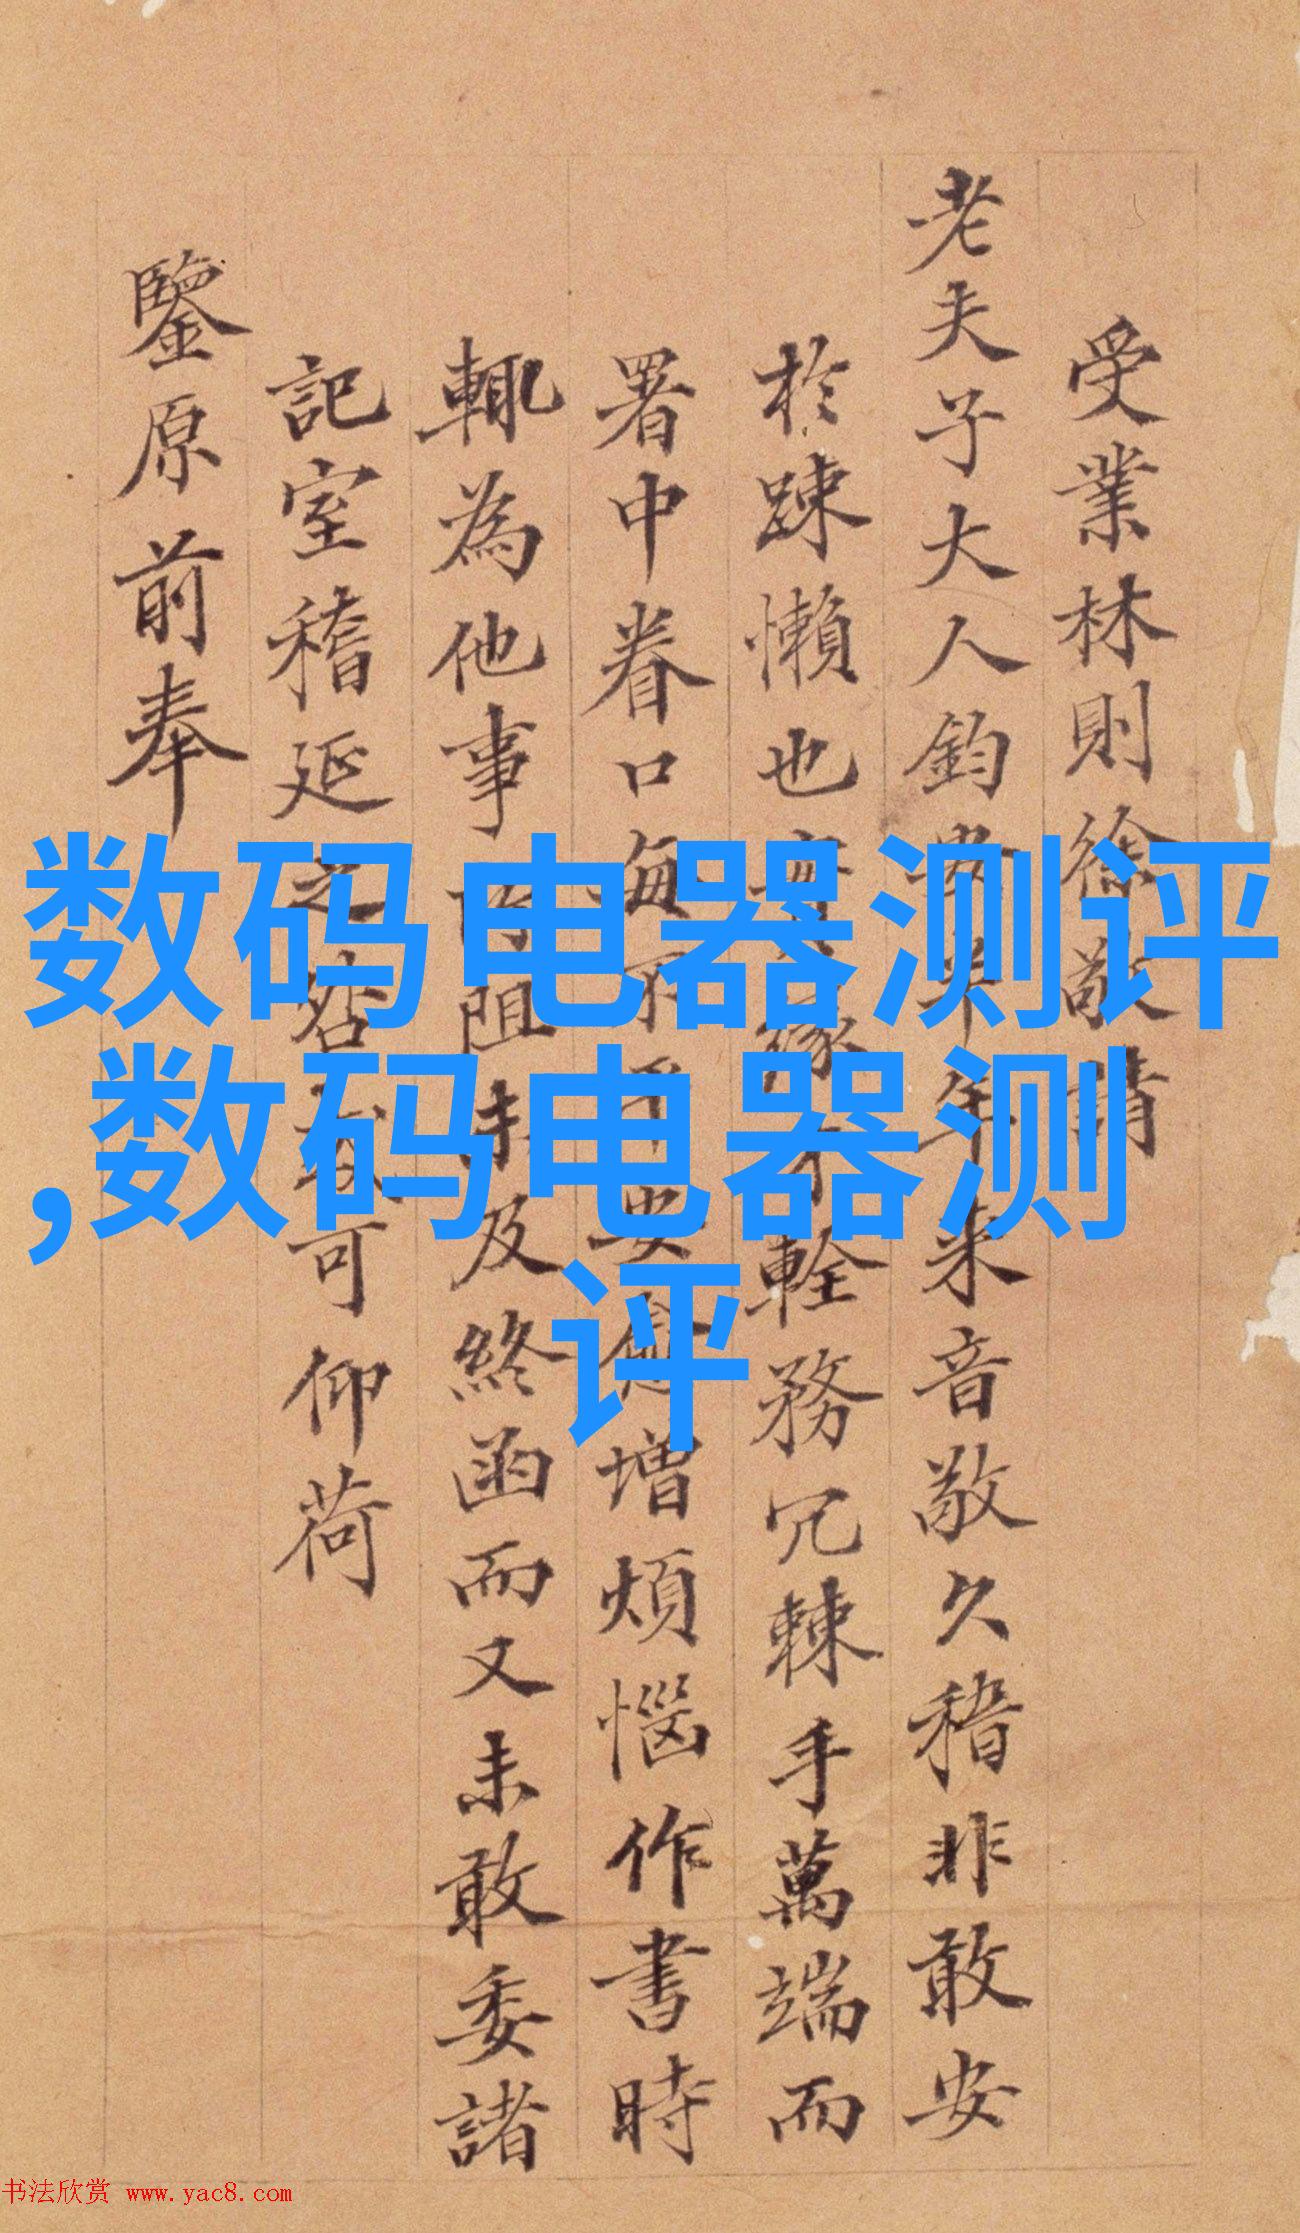 受業林則徐敬請
老夫子大人鈞安半年來音敬久稽非敢安
於踈懶也實緣才輇務冗棘手萬端而
署中眷口每不平安愈增煩惱作書時
輒為他事所阻未及終函而又未敢委諸
記室稽延之咎或可仰荷
鑒原前奉
数码电器测评
,数码电器测
评
书法欣赏 www.yac8.com